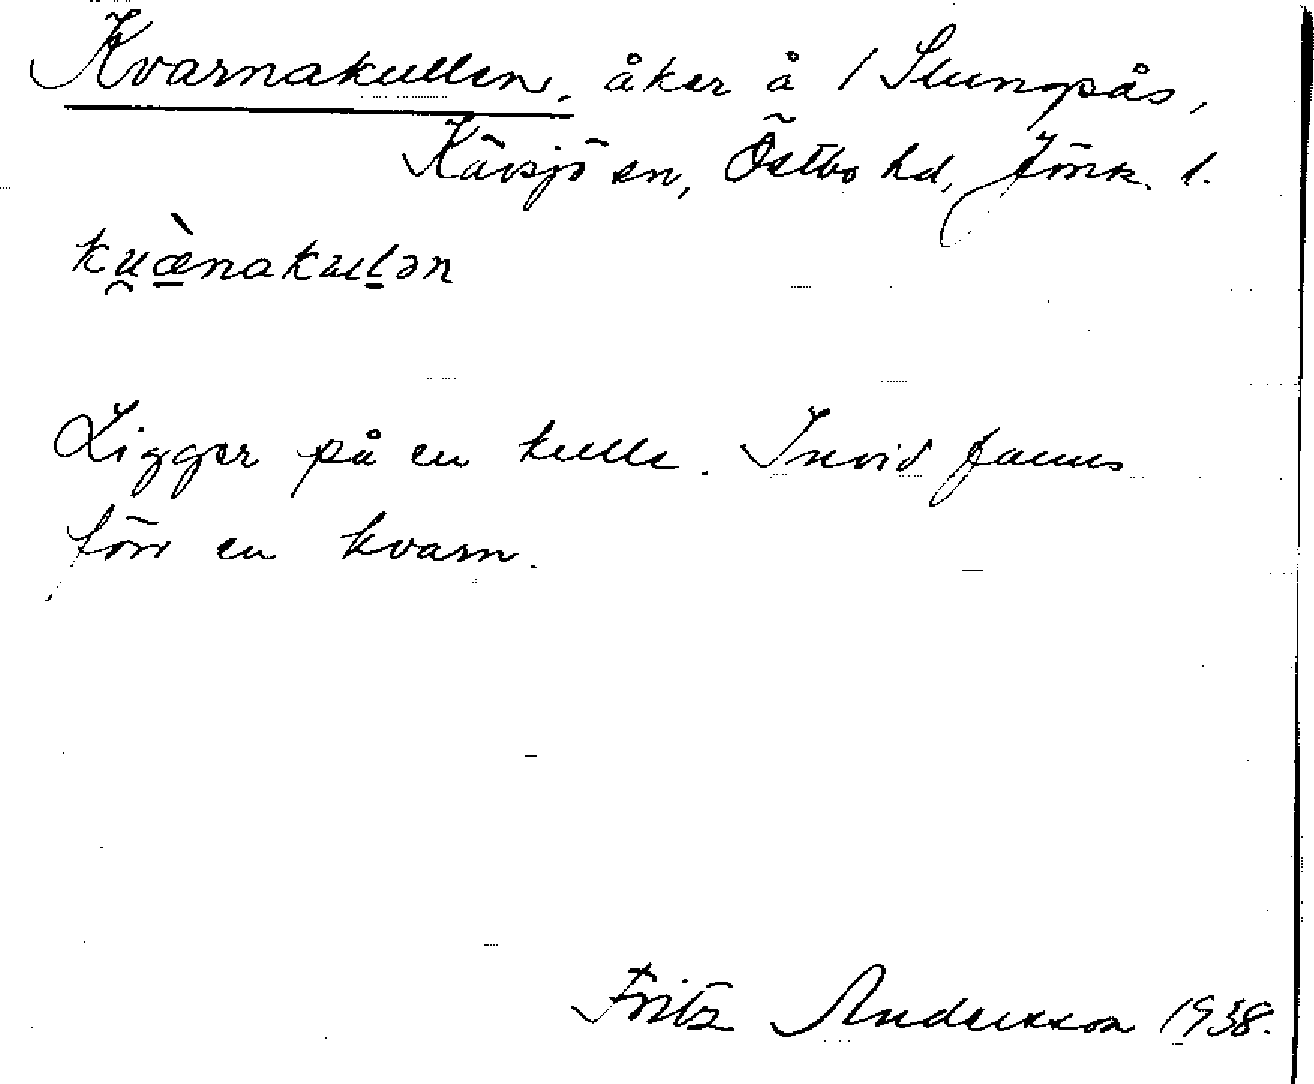 Kvarnakullen, åker å 1 Slungsås,
Kävsjö sn, Östbo hd, Jönk. l.
ku̯æ̀nakulən
Ligger på en kulle. Invid fanns
förr en kvarn.
Fritz Andersson 1938.